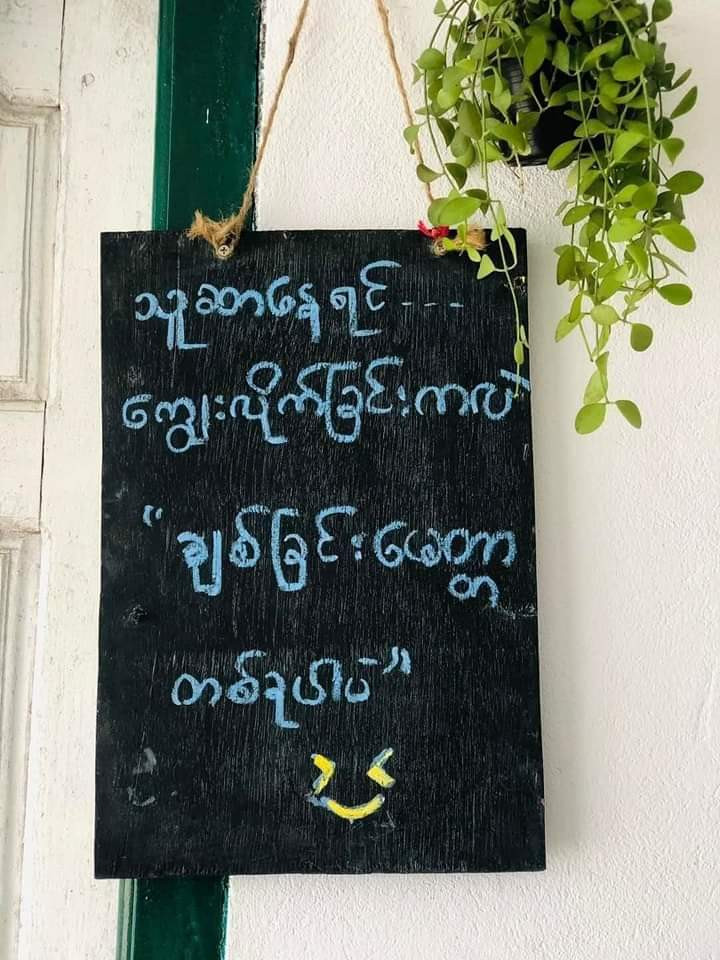 သူဆာနေရင်----
ကျွေးလိုက်ခြင်းကလဲ
“ချစ်ခြင်းမေတ္တာ
တစ်ခုပါပဲ”